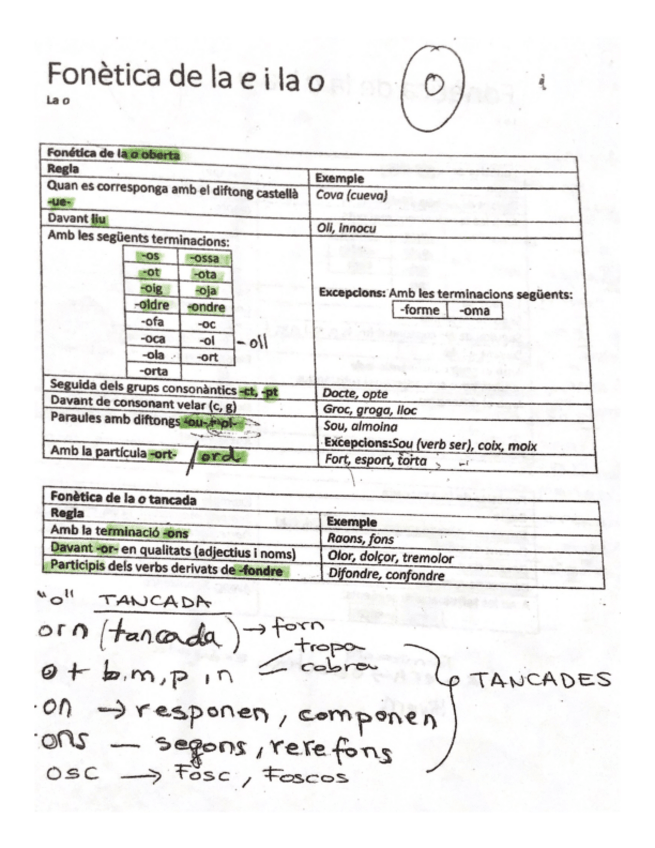 Fonètica de la e i la o
La o
Fonética de la o oberta
Regla Exemple
Quan es corresponga amb el diftong castellà -ue- Cova (cueva)
Davant liu Oli, innocu
Amb les següents terminacions:
-os -ossa
-ot -ota
-oig -oja
-oldre -ondre
-ofa -oc
-oca -ol - oll
-ola -ort
-orta
Excepcions: Amb les terminacions següents:
-forme -oma
Seguida dels grups consonàntics -ct, -pt Docte, opte
Davant de consonant velar (c, g) Groc, groga, lloc
Paraules amb diftongs -ou- Sou, almoina
Excepcions:Sou (verb ser), coix, moix
Amb la partícula -ort- / ord Fort, esport, torta
Fonètica de la o tancada
Regla Exemple
Amb la terminació -ons Raons, fons
Davant -or- en qualitats (adjectius i noms) Olor, dolçor, tremolor
Participis dels verbs derivats de -fondre Difondre, confondre
"o" TANCADA
orn (tancada) → forn
tropa
o + b, m, p, n
TANCADES
·on → responen, componen
·ons — segons, rerefons
osc → Fosc, Foscos